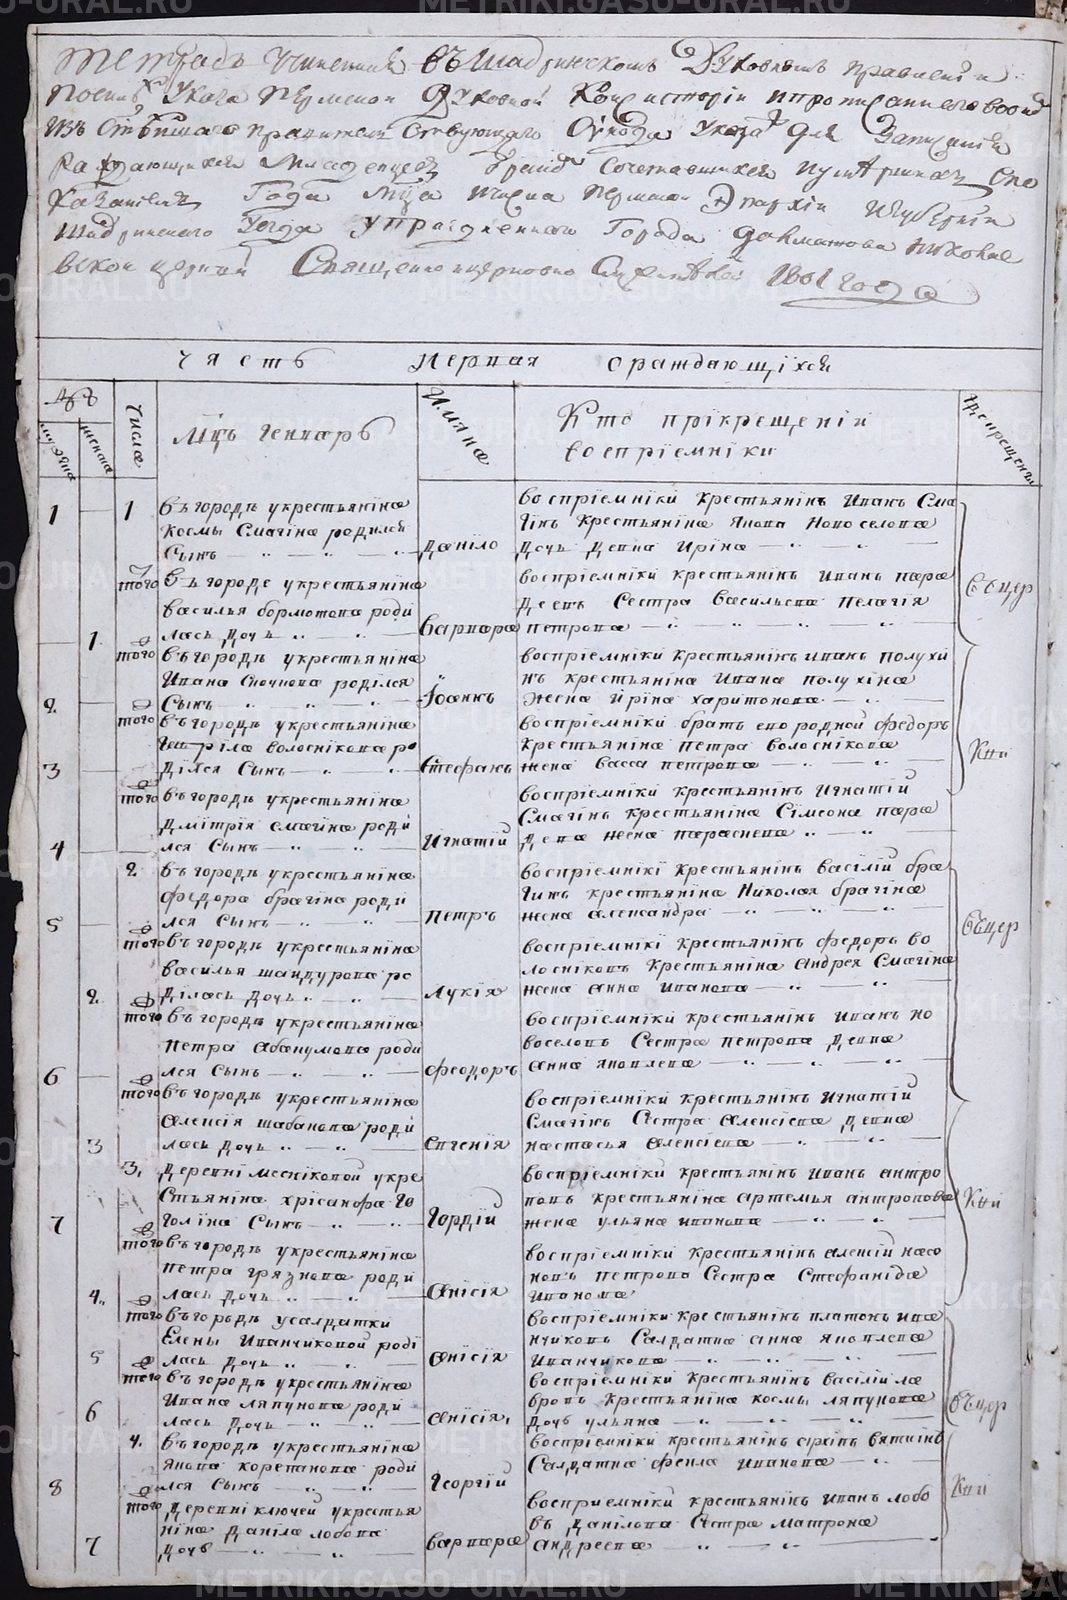 METRIKI.GASO-URAL.RU
Тетрадь Учиненная въ Шадринскомъ Духовномъ правленіи
Указа Пермской Духовной Консисторіи
изъ Святѣйшаго правительствующаго Сѵнода Указа для Записанія
раждающихся Младенцевъ Сочетавшихся и умѣршихъ Спо
казаніемъ Года Мѣца числа Пермской Эпархіи Игуберніи
Шадринскаго уезда упраздненнаго Города далматова николае
вской церкви Священно и церковно 1801 года
часть перпая ораждающіхся
числа
Мцъ генпарь
Имяна
Кто прікрещеніи
воспріемніки
1 1 въгородѣ укрестьяніна
Космы Смагіна роділся
Сынъ Даніло
воспріемніки крестьянінъ Ипанъ Сма
гінъ крестьяніна Якопа Нопоселопа
дочь депка Иріна
того въгороде укрестьяніна
василья бормотопа роді
1 лась дочь варпара
воспріемніки крестьянінъ Ипанъ пара
деепъ Сестра васильепа пелагія
петропа
Въцер
того въгородѣ укрестьяніна
Ипана роділся
2 Сынъ Іоаннъ
воспріемніки крестьянінъ ипанъ полухи
нъ крестьяніна Ипана полухіна
жена ирина харитонопа
того въгородѣ укрестьяніна
гапріла волоснікопа ро
3 ділся Сынъ Стефанъ
воспріемніки братъ его родной федоръ
крестьяніна петра волоснікопа
жена васса петропа
Кпи
того въгородѣ укрестьяніна
дмітрія смагіна роди
4 лся Сынъ Игнатій
воспріемніки крестьянінъ Игнатій
Смагінъ крестьяніна Сімеона пара
депа жена параскепа
2 въгородѣ укрестьяніна
федора брагіна роди
5 лся Сынъ петръ
воспріемнікі крестьянінъ василій бра
гінъ крестьяніна Николая брагіна
жена александра
Въцер
того въгородѣ укрестьяніна
василья шандуропа ро
2 ділась дочь Лукія
воспріемнікі крестьянінъ федоръ во
лоснікопъ крестьяніна андрея Смагіна
жена анна ипанопа
того въгородѣ укрестьяніна
петра абакумопа роди
6 лся Сынъ феодоръ
воспріемніки крестьянінъ Ипанъ но
воселопъ Сестра петропа депка
анна якоплепа
того въгородѣ укрестьяніна
алексія шабанопа роди
3 лась дочь Епгенія
воспріемніки крестьянінъ игнатій
Смагінъ Сестра алексіепа депка
настасья алексіепа
3. деревні меснікопой укре
стьяніна хрісанфа го
7 голіна Сынъ гордій
воспріемніки крестьянінъ Ипанъ антро
попъ крестьяніна артемья антропова
жена ульяна ипанопа
Кпи
того въгородѣ укрестьяніна
петра грязнопа роди
4. лась дочь анісія
воспріемніки крестьянінъ алексій насо
нопъ петропа Сестра Стефаніда
ипанопа
того въгородѣ усалдатки
Елены Ипанчикопой роді
5 лась дочь анісія
воспріемніки крестьянінъ платонъ ипа
нчикопъ Салдатка анна якоплепа
ипанчикопа
того въгородѣ укрестьяніна
Ипана ляпунопа роди
6 лась дочь анісія,
воспріемніки крестьянінъ василій ла
вропъ крестьяніна космы ляпунопа
дочь ульяна
Въцер
4. въгородѣ укрестьяніна
якопа коретанопа роди
8 лся Сынъ георгій
воспріемніки крестьянінъ архіпъ вяткінъ
Салдатка фекла ипанопа
Кпі
того деревні ключей укрестья
ніна даніла лобопа
7 дочь варпара
восприемніки крестьянінъ ипанъ лобо
въ данілопа Сестра матрона
андреепа
METRIKI.GASO-URAL.RU